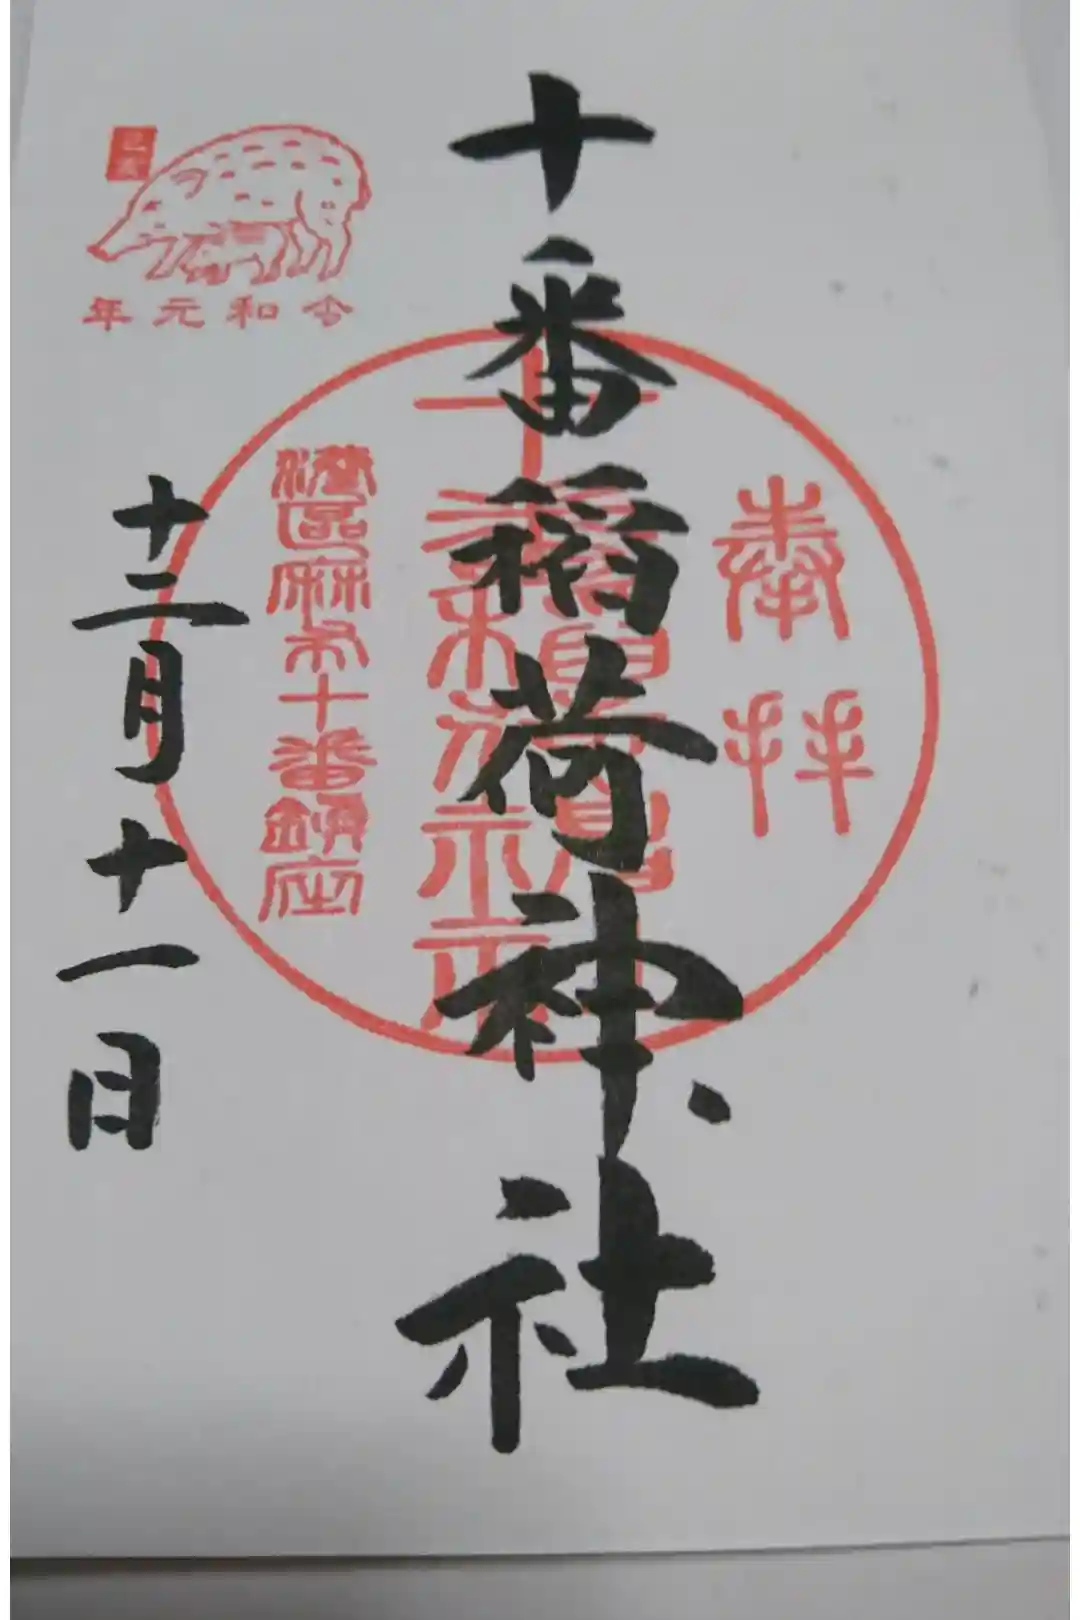 奉拝
十番稲荷神社
港區麻布十番鎮座
己亥
令和元年
十二月十一日